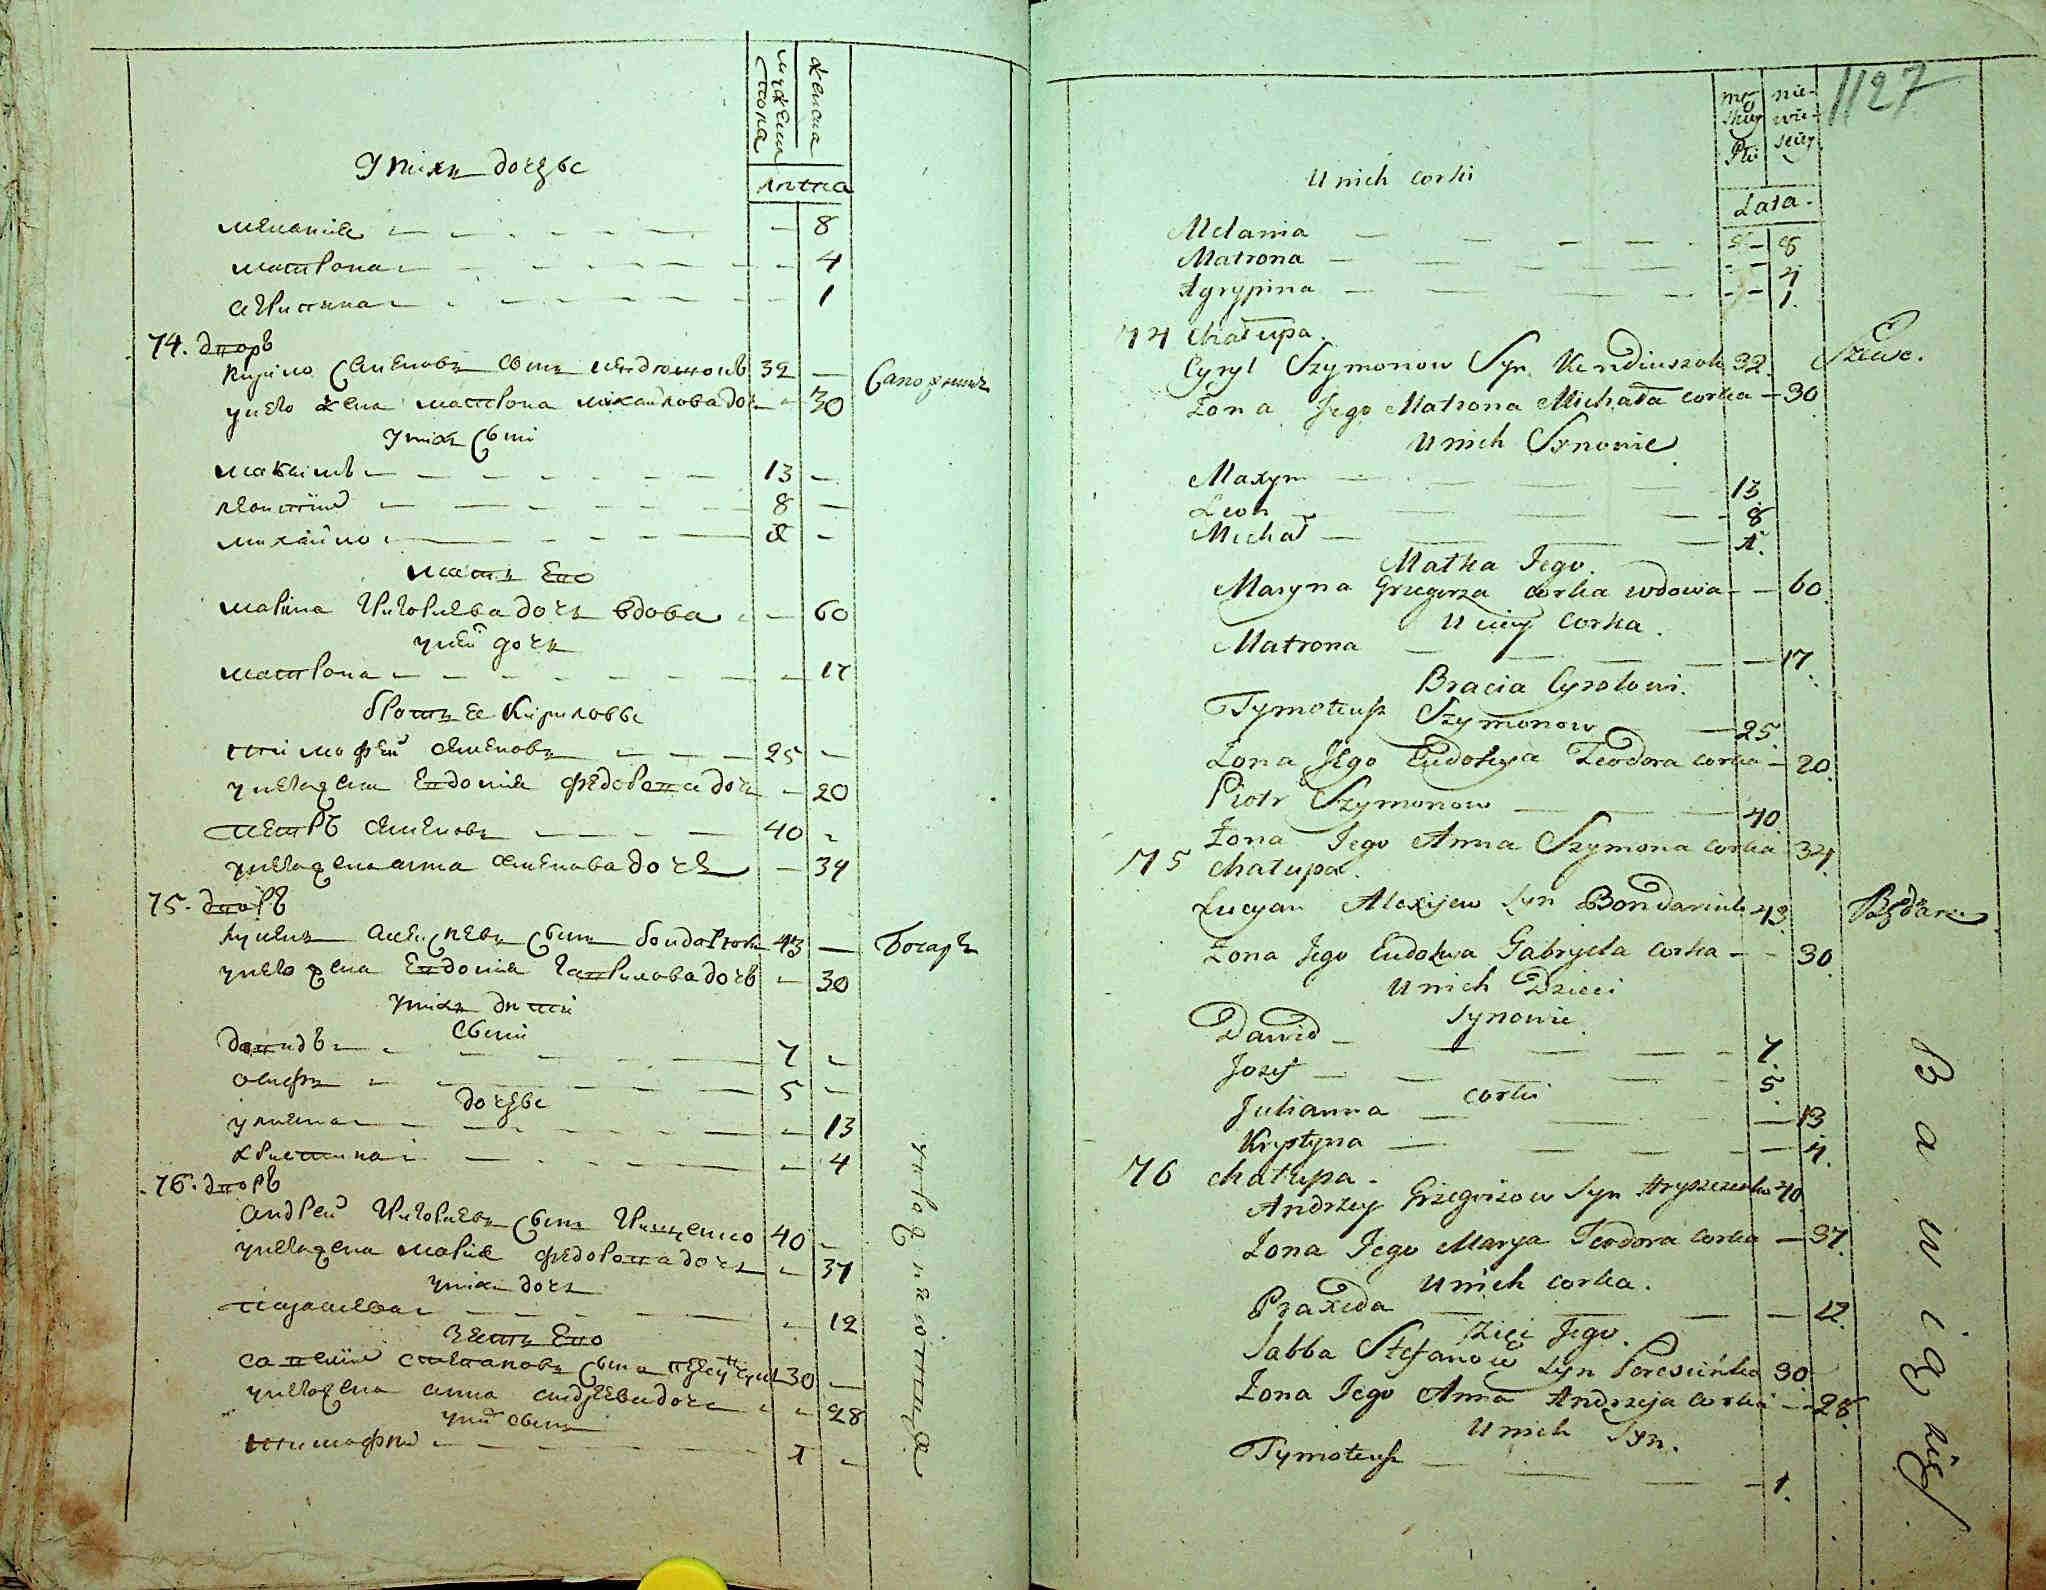 мужеска пола
женска
лѣтна
У нихъ дочерѣ
мелания 8
матрона 4
агрипина 1
74. дворъ
Кирило Семеновъ сынъ 32
Сапожникъ
у него жена матрона михайлова дочь 30
у нихъ сыни
максимъ 13
леонтій 8
михайло
мать Его
марина григориева дочь вдова 60
у ней дочь
матрона 17
братья Кириловы
тимофей семеновъ 25
у него жена Евдокия федорова дочь 20
петръ семеновъ 40
у него жена анна семенова дочь 34
75. дворъ
Лукянъ алексѣевъ сынъ бондарюкъ 43
у него жена Евдокия гаврилова дочь 30
у нихъ дѣти
сыни
давидъ 7
осифъ 5
дочерѣ
улиана 13
христина 4
76. дворъ
андрей григориевъ сынъ грищенко 40
у него жена мария федорова дочь 37
у нихъ дочь
12
зять Его
савелий степановъ сынъ 30
у него жена анна андреева дочь 28
у них сынъ
тимофей 1
1127
męskiey Płci
niewieściey
Lata.
U nich corki
Melania 8
Matrona 4
Agrypina 1.
74 chałupa.
Cyryl Szymonow Syn Kindiuszok 32.
Szewc.
Żona Jego Matrona Michała corka 30
U nich Synowie
Maxym 13
Leon 8
Michał 1.
Matka Jego.
Maryna Grzegorza corka wdowa 60.
U niey Corka.
Matrona 17.
Bracia Cyrolowi.
Tymoteusz Szymonow 25.
Żona Jego Eudokya Teodora corka 20.
Piotr Szymonow 40.
Żona Jego Anna Szymona corka 34.
75 chałupa.
Lucyan Alexijew Syn Bondariuk 43.
Żona Jego Eudokya Gabryela corka 30.
U nich Dzieci
Synowie.
Dawid 7.
Jozef 5.
corki
Julianna 13.
Krystyna 4.
76 chałupa.
Andrzey Grzegorzow Syn Hryszczenko 40
Żona Jego Marya Teodora corka 37.
U nich corka.
Praxeda 12.
Zięć Jego.
Sabba Stefanow Syn 30
Żona Jego Anna Andrzeja corka 28.
U nich Syn.
Tymoteusz 1.